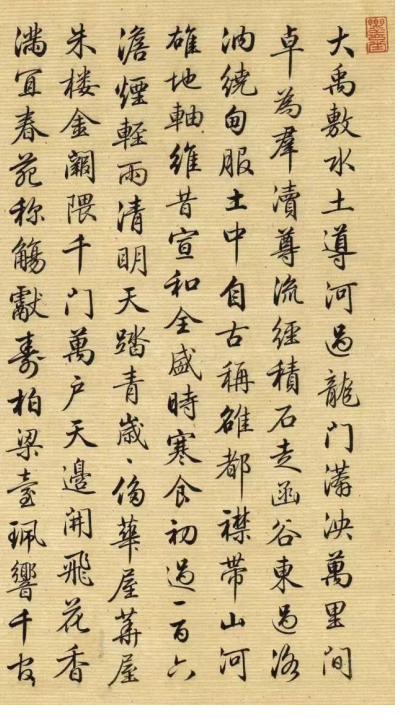 大禹敷水土導河過龍门漭泱萬里间
卓為羣瀆尊流經積石走函谷東過洛
汭繞甸服土中自古稱雄都襟帶山河
雄地軸維昔宣和全盛時寒食初過一百六
澹煙輕雨清明天踏青歲〻傍華屋華屋
朱楼金闕隈千门萬户天邊開飛花香
满宜春苑称觴獻壽柏梁臺珮響千官